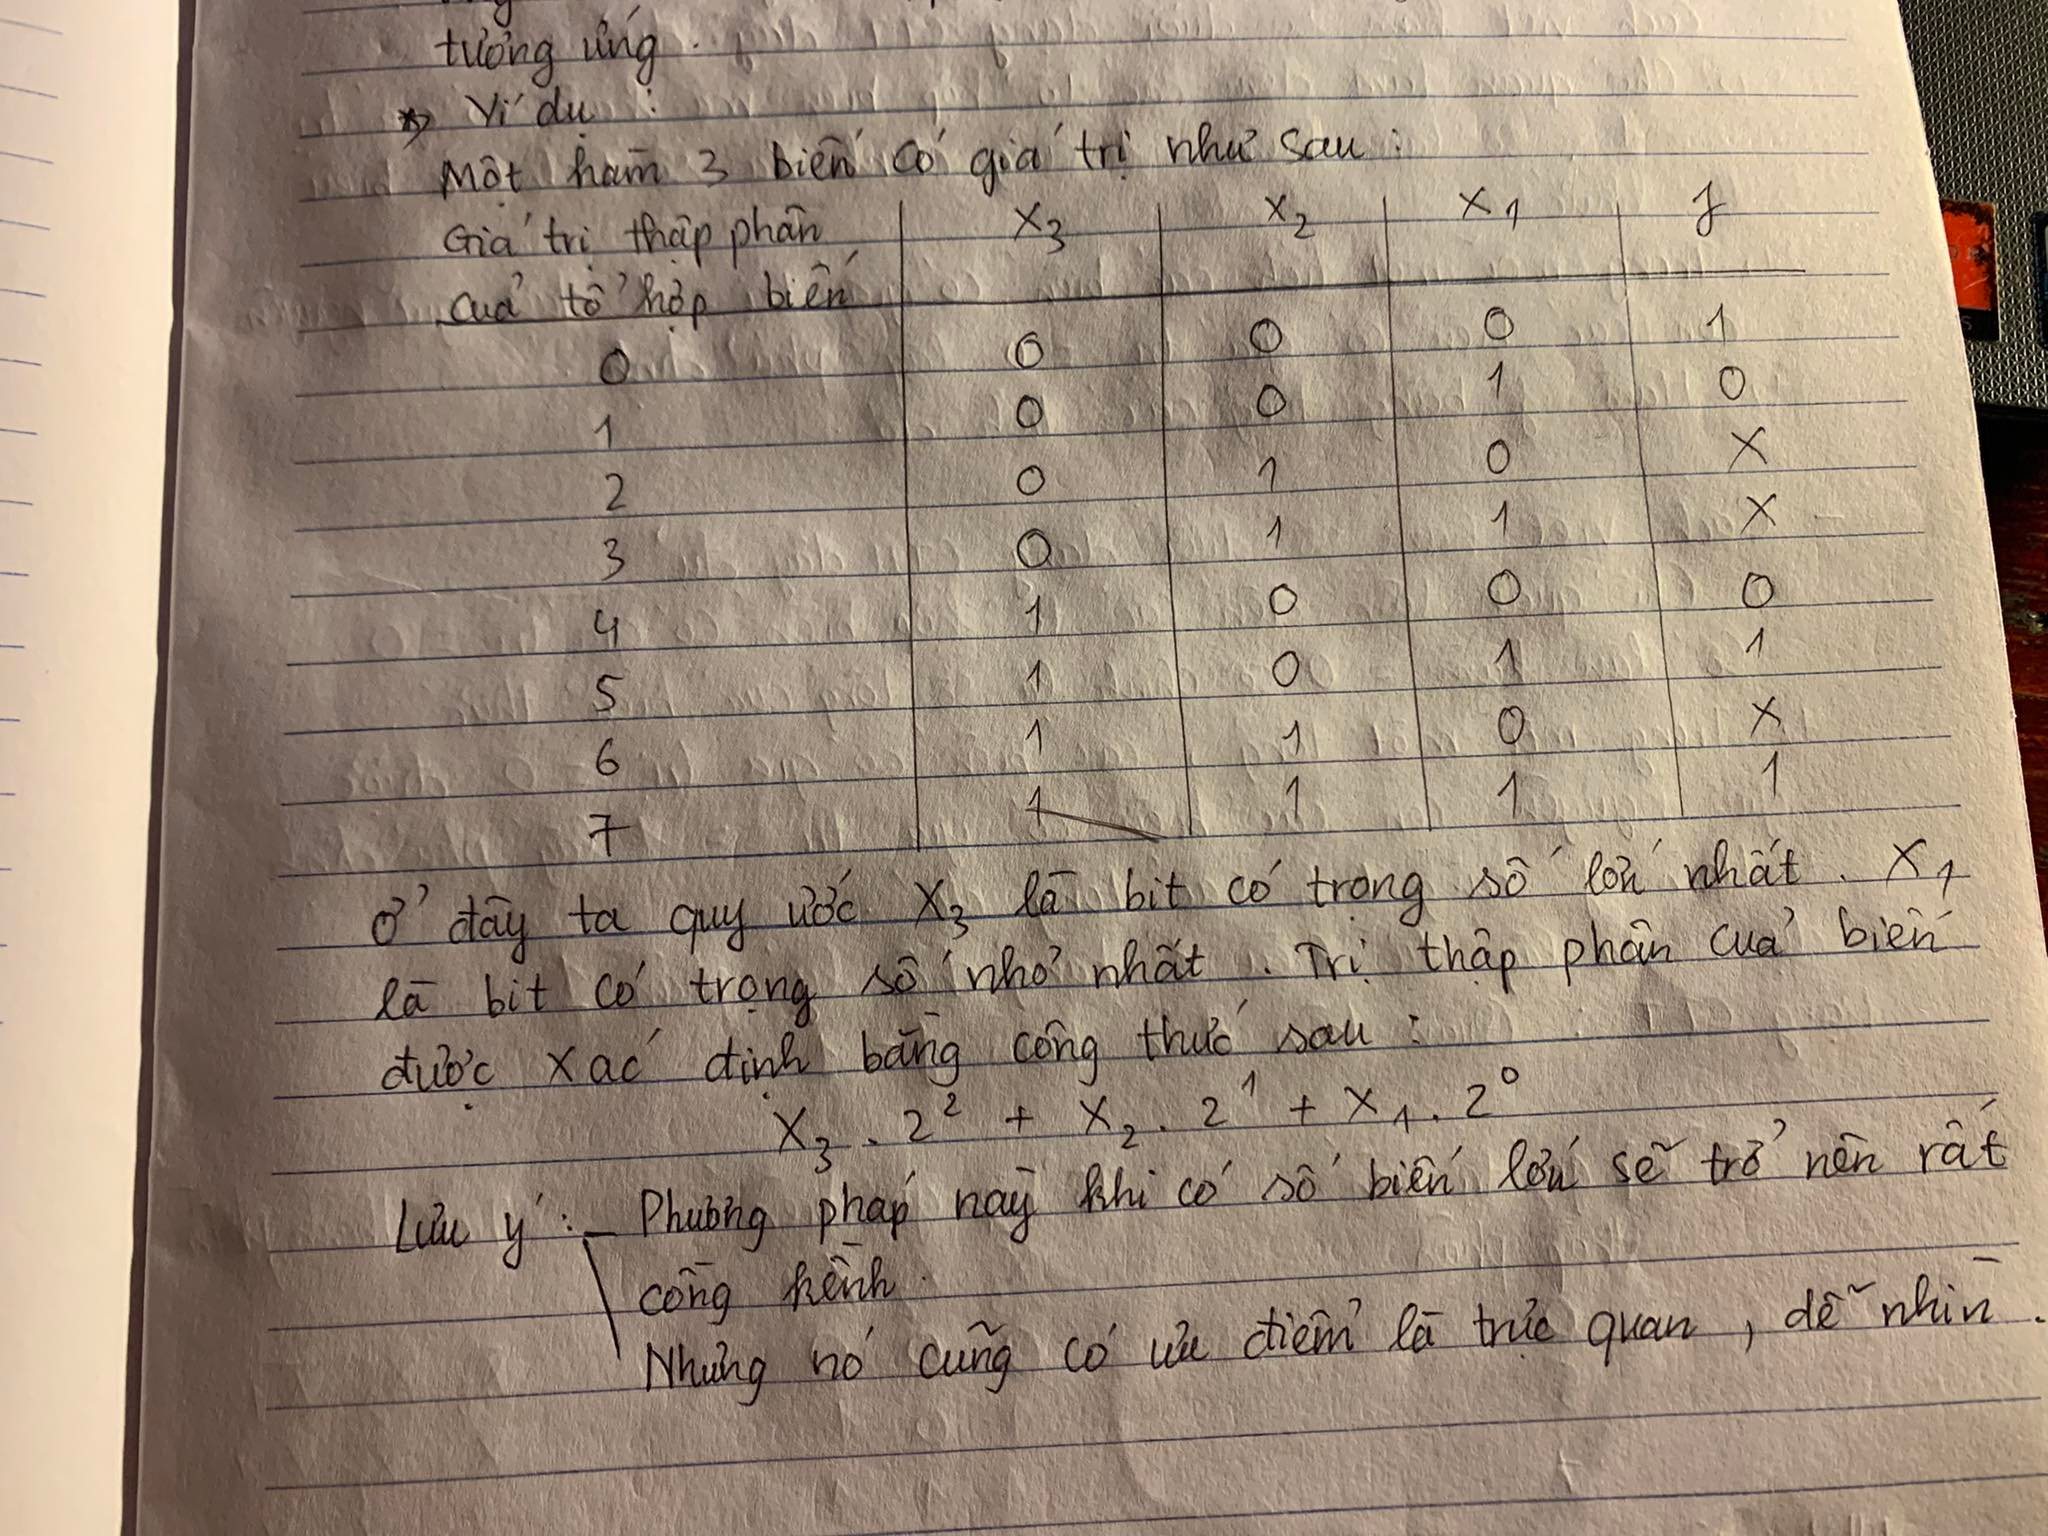 tương ứng.
* Ví dụ :
Một hàm 3 biến có giá trị như sau :
Giá trị thập phân x3 x2 x1 f
của tổ hợp biến
0 0 0 0 1
1 0 0 1 0
2 0 1 0 X
3 0 1 1 X
4 1 0 0 0
5 1 0 1 1
6 1 1 0 X
7 1 1 1 1
Ở đây ta quy ước X3 là bit có trọng số lớn nhất. X1
là bit có trọng số nhỏ nhất. Trị thập phân của biến
được xác định bằng công thức sau :
X3 . 2² + X2 . 2¹ + X1 . 2⁰
Lưu ý : - Phương pháp này khi có số biến lớn sẽ trở nên rất
cồng kềnh.
Nhưng nó cũng có ưu điểm là trực quan, dễ nhìn.